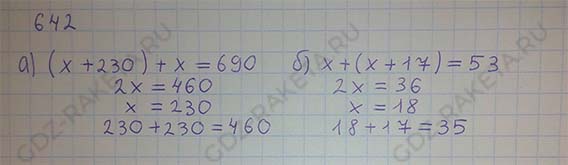 642
а) (x + 230) + x = 690
2x = 460
x = 230
230 + 230 = 460
б) x + (x + 17) = 53
2x = 36
x = 18
18 + 17 = 35
GDZ-RAKETA.RU
GDZ-RAKETA.RU
GDZ-RAKETA.RU